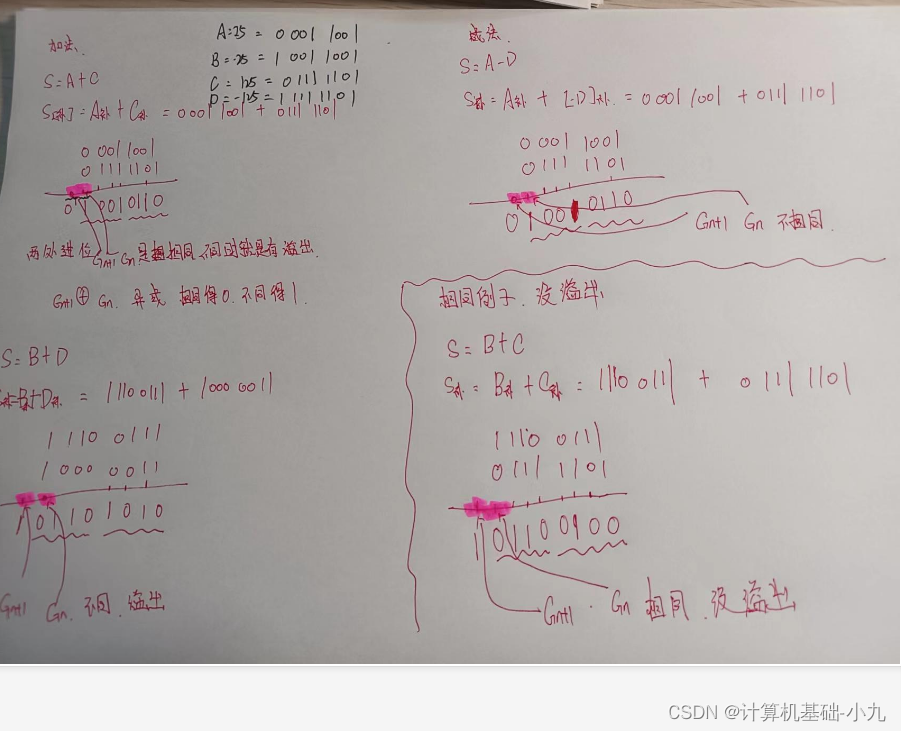 加法.
A:25 = 0 001 1001
B=-25 = 1 001 1001
C = 125 = 0 111 1101
D = -125 = 1 111 1101
S=A+C
S[补] = A补 + C补 = 0001 1001 + 0111 1101
0 001 1001
0 111 1101
0 1 001 0110
两处进位 Gn+1 Gn 是否相同,不同就是有溢出.
Gn+1 ⊕ Gn. 异或 相同得0.不同得1.
减法.
S=A-D
S补= A补 + [-D]补 = 0001 1001 + 0111 1101
0 001 1001
0 111 1101
0 1 00 1 0110
Gn+1 Gn 不相同.
S=B+D
S补=B补+D补 = 1110 0111 + 1000 0011
1 110 0111
1 000 0011
1 0110 1010
Gn+1 Gn. 不同.溢出
相同例子.没溢出
S=B+C
S补= B补+C补= 1110 0111 + 0111 1101
1110 0111
0111 1101
1 0110 0100
Gn+1 . Gn 相同.没溢出
CSDN @计算机基础-小九